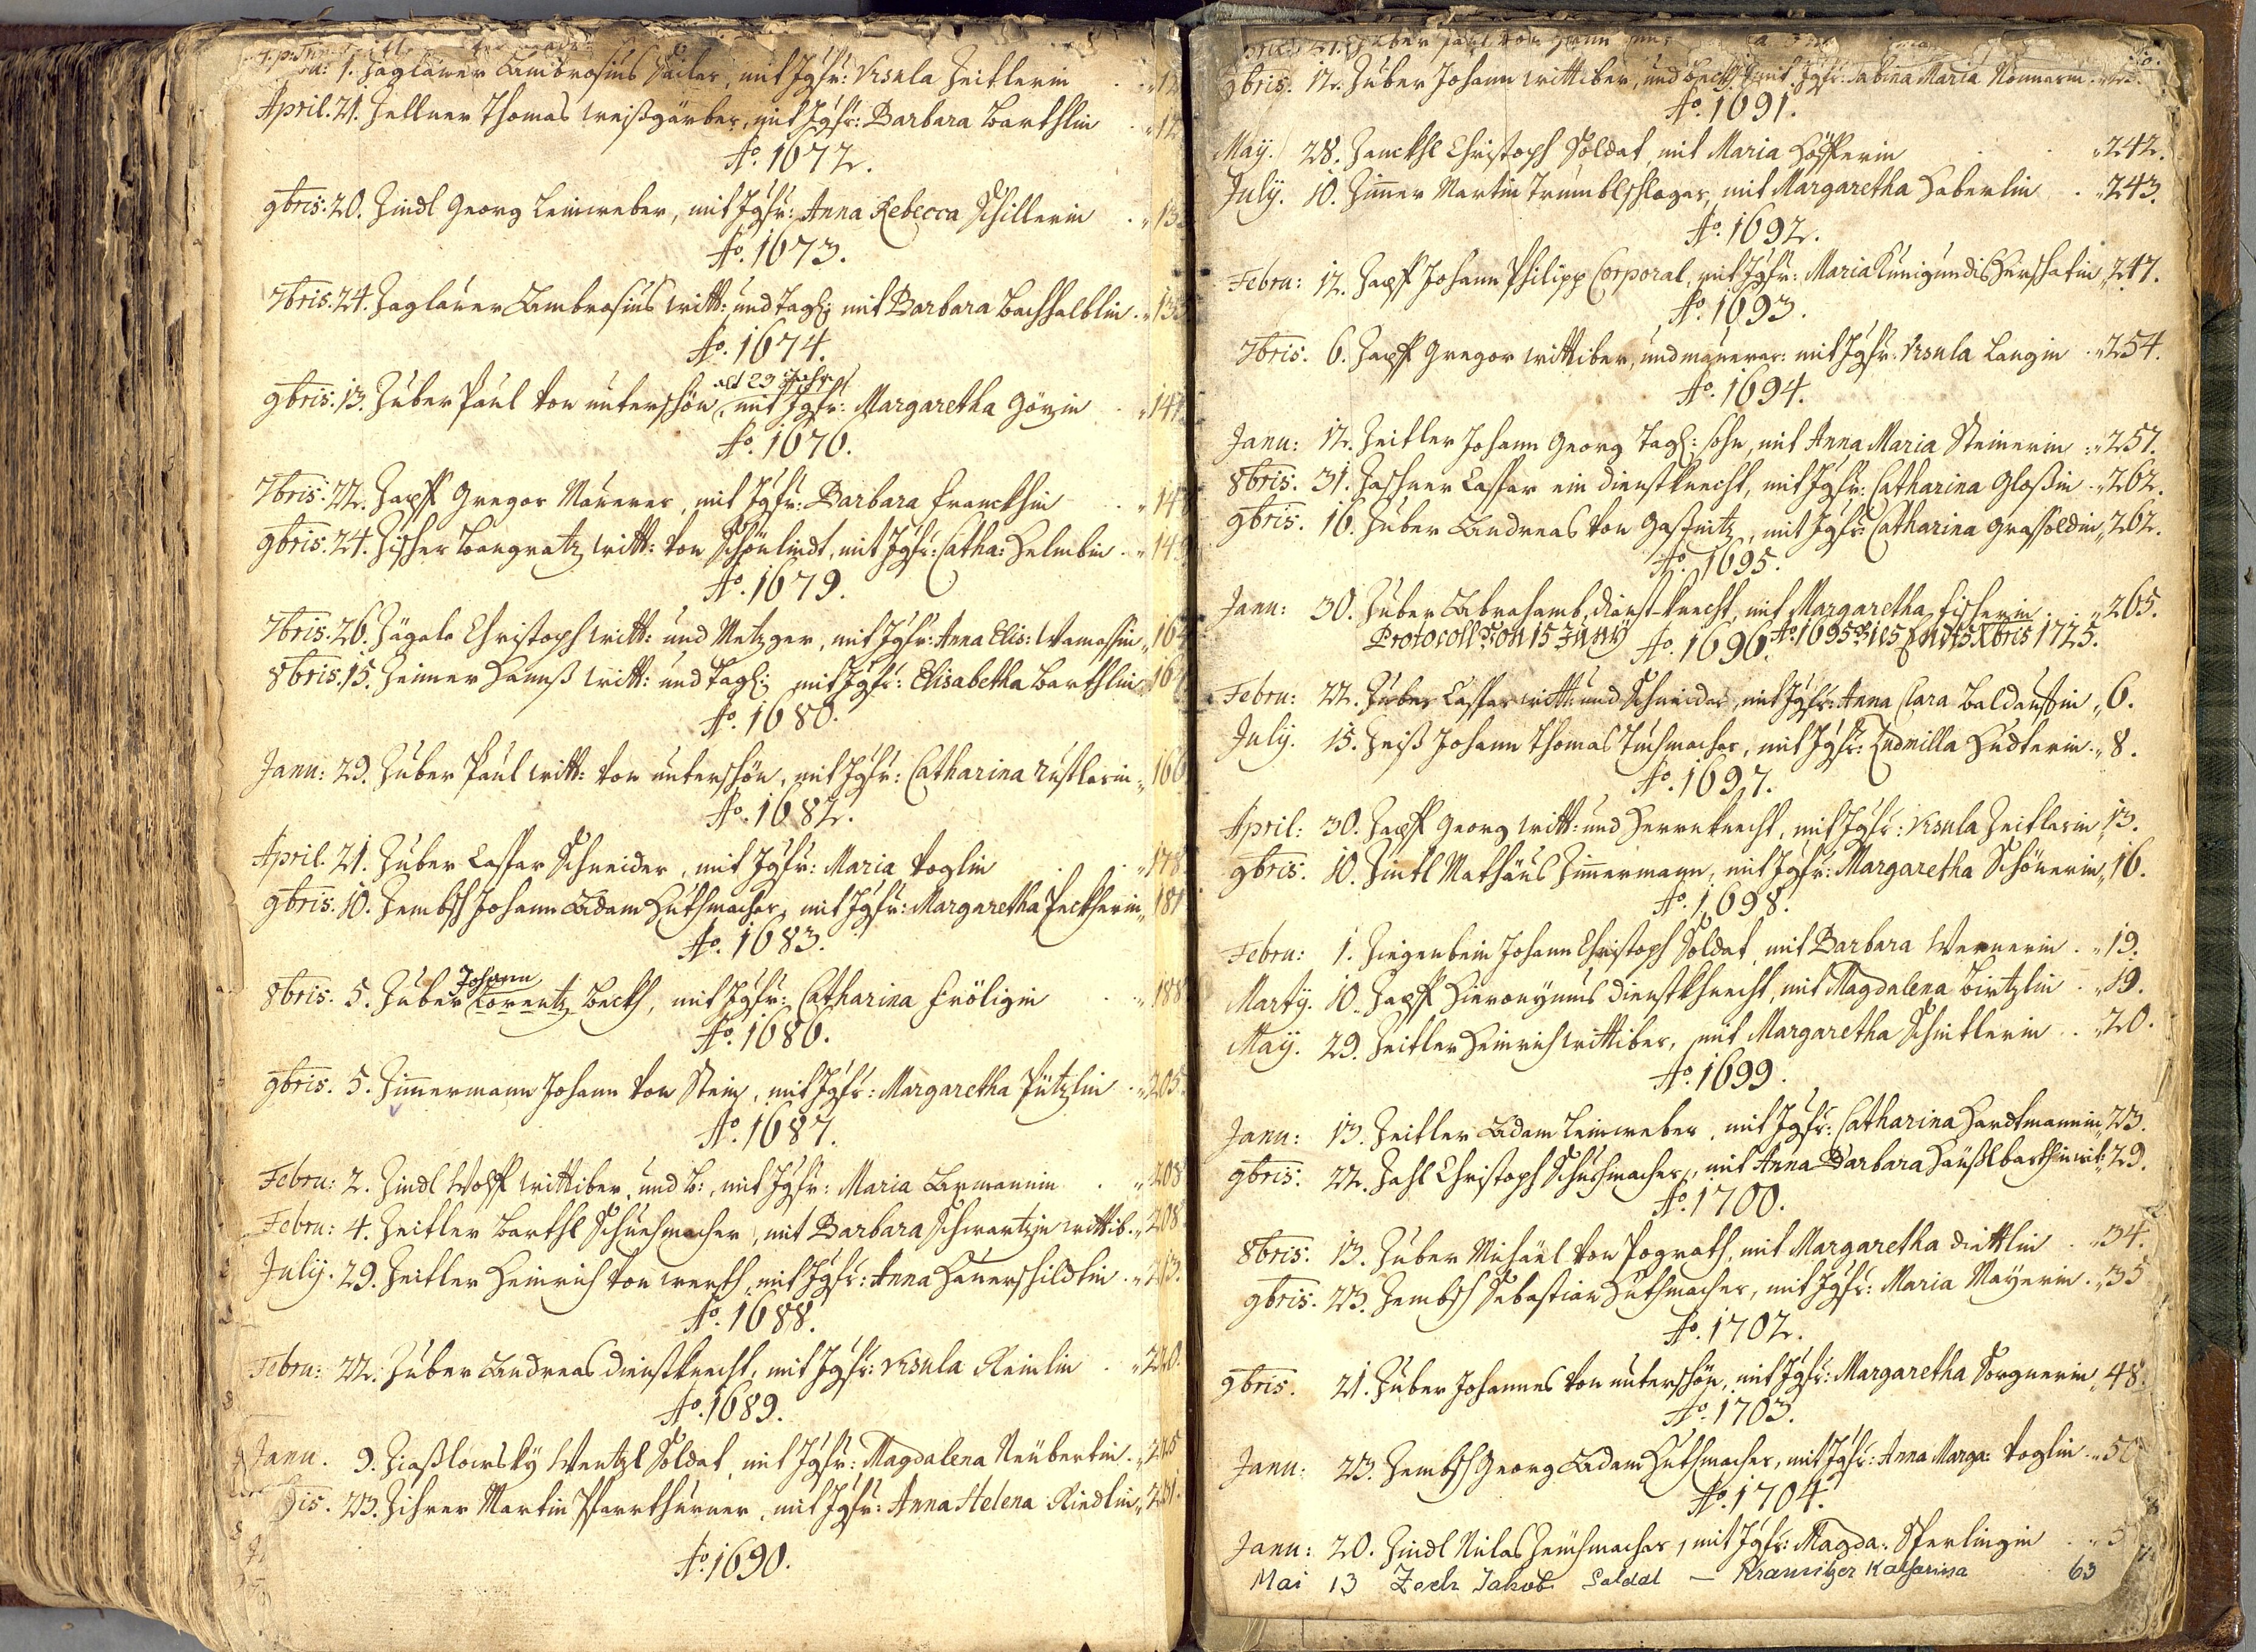 1. Zaglauer Ambrosius Sailer, mit Jgfr: Ursula Zeitlerin
April. 21. Zellner Thomas weißgärber, mit Jgfr: Barbara Barthlin
Ao. 1672.
9bris. 20. Zindl Georg Leinweber, mit Jgfr: Anna Rebecca Schillerin
Ao. 1673.
7bris. 24. Zaglauer Ambrosius witt: und Tagl: mit Barbara Bachhalblin
Ao. 1674.
alt 29 Jahr
9bris. 13. Zuber Paul von unterschön, mit Jgfr: Margaretha Görgin
Ao. 1676.
7bris. 22. Zapff Gregor Maurer, mit Jgfr: Barbara Franckhin
9bris. 24. Zischer Bangratz witt: von Schönlindt, mit Jgfr: Catha: Helmbin
Ao. 1679.
7bris. 26. Zägele Christoph witt: und Metzger, mit Jgfr: Anna Elis: Wamassin
8bris. 15. Zeiner Hannß witt: und Tagl: mit Jgfr: Elisabetha Barthlin
Ao. 1680.
Janu: 29. Zuber Paul witt: von unterschön, mit Jgfr: Catharina Rustlerin 166
Ao. 1682.
April. 21. Zuber Casper Schneider, mit Jgfr: Maria Voglin 178
9bris. 10. Zembsch Johann Adam Huthmacher, mit Jgfr: Margaretha Peckherin 181
Ao. 1683.
Johann
8bris. 5. Zuber Lorentz Beckh, mit Jgfr: Catharina Fröligin 188
Ao. 1686.
9bris. 5. Zimmermann Johann von Stein, mit Jgfr: Margaretha Pützlin 205
Ao. 1687.
Febru: 2. Zindl Wolff wittiber, und B:, mit Jgfr: Maria Axmannin 208
Febru: 4. Zeitler Barthl Schuehmacher, mit Barbara Schwartzin wittib. 208
July. 29. Zeitler Heinrich von werth, mit Jgfr: Anna Hauerschildlin 213.
Ao. 1688.
Febru: 22. Zuber Andreas dienstknecht, mit Jgfr: Ursula Reinlin 220.
Ao. 1689.
Janu. 9. Ziaßlowsky Wentzl Soldat, mit Jgfr: Magdalena Neubertin 225
23. Zihrer Martin Pfarrthurner, mit Jgfr: Anna Helena Riedlin 231.
Ao. 1690.
9bris. 12. Zuber Johann wittiber, und Beckh, mit Jgfr: Sabina Maria Nonnerin
Ao. 1691.
Maÿ. 28. Zanckhl Christoph Soldat, mit Maria Höfferin 242.
July. 10. Zimmer Martin Trumblschlager, mit Margaretha Haberlin 243.
Ao. 1692.
Febru: 12. Zapff Johann Philipp Corporal, mit Jgfr: Maria Kunigundis Hirschatin 247.
Ao. 1693.
7bris. 6. Zapff Gregor wittiber, und maurer: mit Jgfr: Ursula Langin 254.
Ao. 1694.
Janu: 12. Zeitler Johann Georg Tagl: sohn, mit Anna Maria Steinerin 257.
8bris. 31. Zaschner Casper ein dienstknecht, mit Jgfr: Catharina Gloßin 262.
9bris. 16. Zuber Andreas von Gaßnitz, mit Jgfr: Catharina Grassoldin 262.
Ao. 1695.
Janu: 30. Zuber Abrahamb, dienst-knecht, mit Margaretha Fischerin 265.
Protocoll Von 15 Juny Ao. 1695 bies Endt 5 Xbris 1725.
Ao. 1696.
Febru: 22. Zuber Casper witt: und Schneider, mit Jgfr: Anna Clara Baldaufin 6.
July. 15. Zeiß Johann Thomas Tuchmacher, mit Jgfr: Ludmilla Huderin 8.
Ao. 1697.
April: 30. Zapff Georg witt: und Herrnknecht, mit Jgfr: Ursula Zeitlerin 13.
9bris. 10. Zintl Mathäus Zimmermann, mit Jgfr: Margaretha Schönerin 16.
Ao. 1698.
Febru: 1. Ziegenbein Johann Christoph Soldat, mit Barbara Wernerin 19.
Martÿ. 10. Zapff Hieronymus dienstkhnecht, mit Magdalena Birtzlin 19.
Maÿ. 29. Zeitler Heinrich wittiber, mit Margaretha Schintlerin 20.
Ao. 1699.
Janu: 13. Zeitler Adam Leinweber, mit Jgfr: Catharina Hardtmannin 23.
9bris. 22. Zahl Christoph Schuhmacher, mit Anna Barbara Häußlbarthin wit: 29.
Ao. 1700.
8bris. 13. Zuber Michäel von Pograth, mit Margaretha Dietlin 34.
9bris. 23. Zembsch Sebastian Huthmacher, mit Jgfr: Maria Mayerin 35
Ao. 1702.
9bris. 21. Zuber Johannes von unterschön, mit Jgfr: Margaretha Sorgnerin 48.
Ao. 1703.
Janu: 23. Zembsch Georg Adam Huthmacher, mit Jgfr: Anna Marga: Voglin 50
Ao. 1704.
Janu: 20. Zindl Niclas Zeuchmacher, mit Jgfr: Magda: Sperlingin
Mai 13 Zech Jakob Soldat — Kramitzer Katharina 63